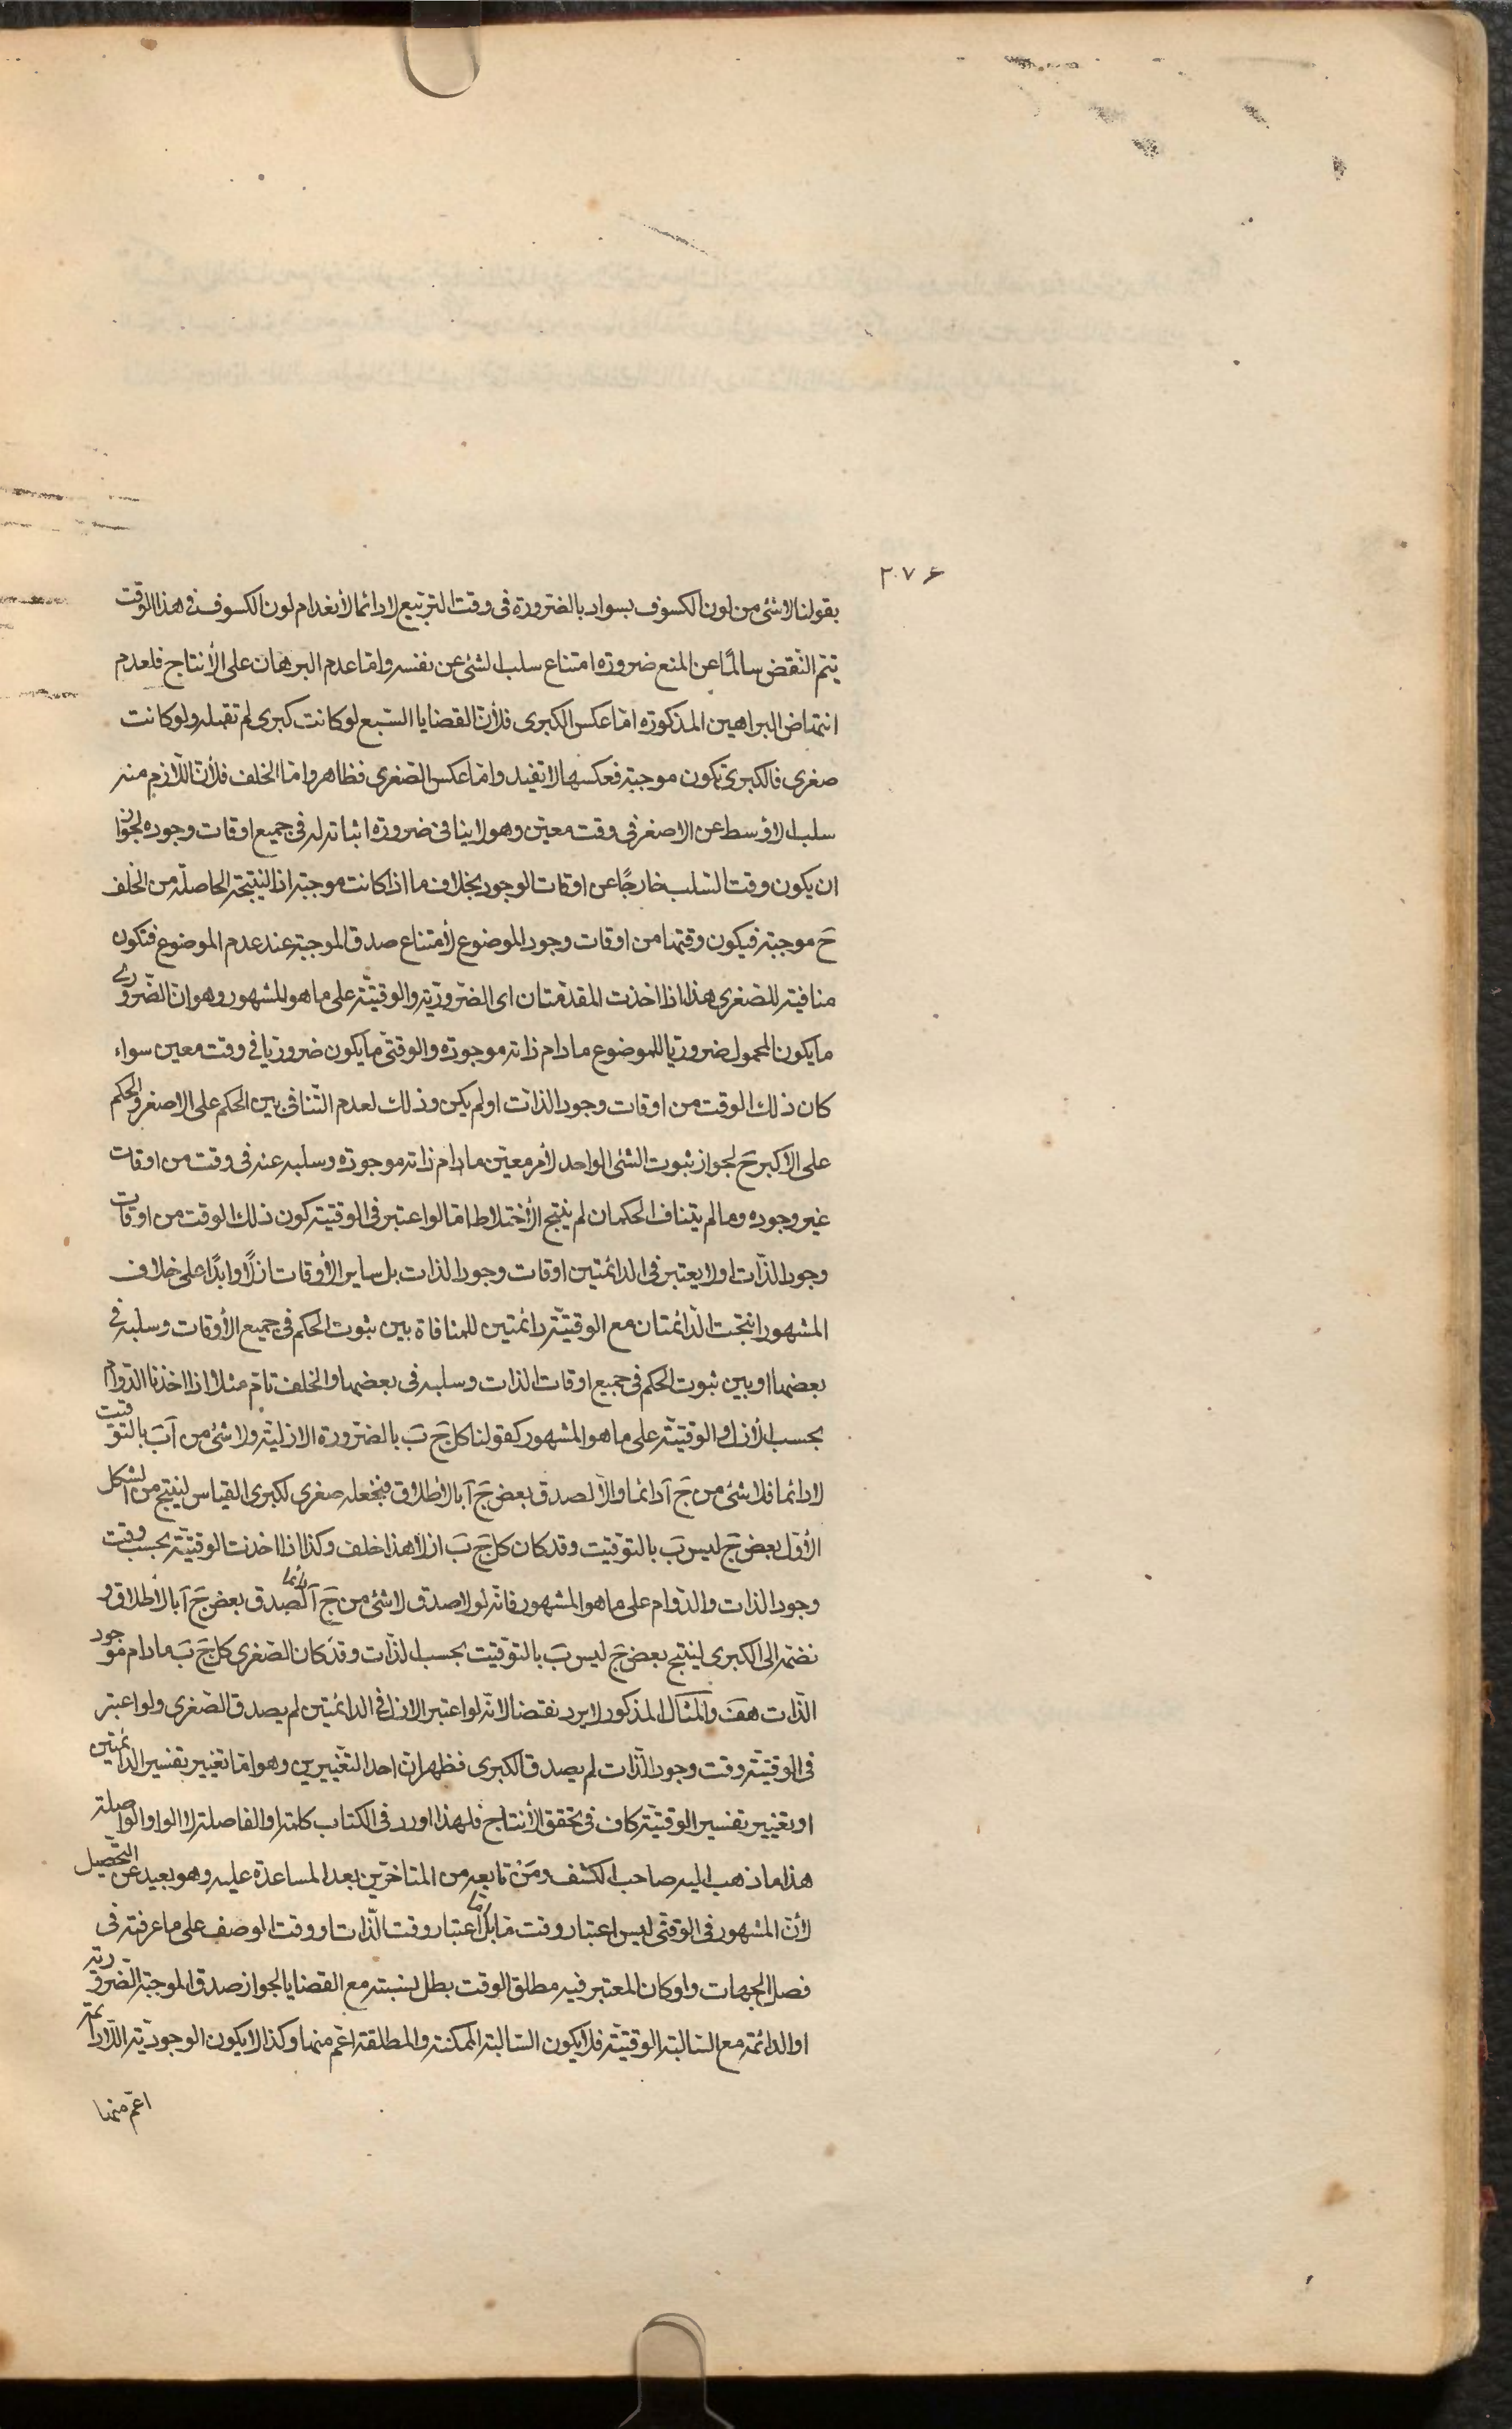 ٢٠٧۶
بقولنا لا شئ من لون الكسوف بسواد بالضرورة فى وقت التربيع لا دائما لأنعدام لون الكسوف فى هذا الوقت
يتم النّقض سالمًا عن المنع ضرورة امتناع سلب الشئ عن نفسه وامّا عدم البرهان على الأنتاج فلعدم
انتهاض البراهين المذكورة امّا عكس الكبرى فلأنّ القضايا السّبع لو كانت كبرى لم تقبله ولو كانت
صغرى فالكبرى تكون موجبة فعكسها لا تفيد وامّا عكس الصّغرى فظاهر وامّا الخلف فلأنّ اللّازم منه
سلب الاوسط عن الاصغر فى وقت معيّن وهو لا ينافى ضرورة اثباته له فى جميع اوقات وجوده لجواز
ان يكون وقت السّلب خارجًا عن اوقات الوجود بخلاف ما اذا كانت موجبة اذ النّتيجة الحاصلة من الخلف
حَ موجبة فيكون وقتها من اوقات وجود الموضوع لأمتناع صدق الموجبة عند عدم الموضوع فتكون
منافية للصّغرى هذا اذا اخذت المقدّمتان اى الضّروريّة والوقتيّة على ما هو المشهور وهو انّ الضّرورى
ما يكون المحمول ضروريا للموضوع ما دام ذاته موجودة والوقتى ما يكون ضروريا فى وقت معين سواء
كان ذلك الوقت من اوقات وجود الذات او لم يكن وذلك لعدم التّنافى بين الحكم على الاصغر والحكم
على الأكبر حَ لجواز ثبوت الشئ الواحد لأمر معيّن ما دام ذاته موجودة وسلبه عنه فى وقت من اوقات
غير وجوده وما لم يتناف الحكمان لم ينتج الأختلاط امّا لو اعتبر فى الوقتيّة كون ذلك الوقت من اوقات
وجود الذّات اولا يعتبر فى الدائمتين اوقات وجود الذات بل ساير الأوقات ازلًا وابدًا على خلاف
المشهور انتجت الدّائمتان مع الوقتيّة دائمتين للمنافاة بين ثبوت الحكم فى جميع الأوقات وسلبه فى
بعضها او بين ثبوت الحكم فى جميع اوقات الذات وسلبه فى بعضها والخلف تامّ مثلا اذا اخذنا الدّوام
بحسب الأزل والوقتيّة على ما هو المشهور كقولنا كل جَ بَ بالضّرورة الازليّة ولا شئ من آ بَ بالتّوقيت
لا دائما فلا شئ من جَ آ دائما والّا لصدق بعض جَ آ بالأطلاق فنجعله صغرى لكبرى القياس لينتج من الشكل
الأوّل بعض جَ ليس بَ بالتوقيت وقد كان كل جَ بَ ازلا هذا خلف وكذا اذا اخذت الوقتيّة بحسب وقت
وجود الذات والدّوام على ما هو المشهور فانّه لولا صدق لا شئ من جَ آ دائما لصدق بعض جَ آ بالأطلاق و
نضمّه الى الكبرى لينتج بعض جَ ليس بَ بالتوقيت بحسب الذّات وقد كان الصّغرى كل جَ بَ ما دام موجود
الذّات هفَ والمثال المذكور لا يرد نقضا لانّه لو اعتبر الازل فى الدائمتين لم يصدق الصّغرى ولو اعتبر
فى الوقتيّة وقت وجود الذّات لم يصدق الكبرى فظهر انّ احد التّغييرين وهو امّا تغيير تفسير الدائمتين
او تغيير تفسير الوقتيّة كاف فى تحقق الأنتاج فلهذا اورد فى الكتاب كلمة او الفاصلة لا الواو الواصلة
هذا ما ذهب اليه صاحب الكشف ومَنْ تابعه من المتاخرين بعد المساعدة عليه وهو بعيد عن التّحصيل
لأنّ المشهور فى الوقتى ليس اعتبار وقت مّا بل امّا اعتبار وقت الذّات او وقت الوصف على ما عرفته فى
فصل الجهات ولو كان المعتبر فيه مطلق الوقت بطل نسبته مع القضايا لجواز صدق الموجبة الضّرورية
او الدائمة مع السّالبة الوقتيّة فلا يكون السّالبة الممكنة والمطلقة اعمّ منها وكذا لا يكون الوجوديّة اللّادائمة
اعمّ منها